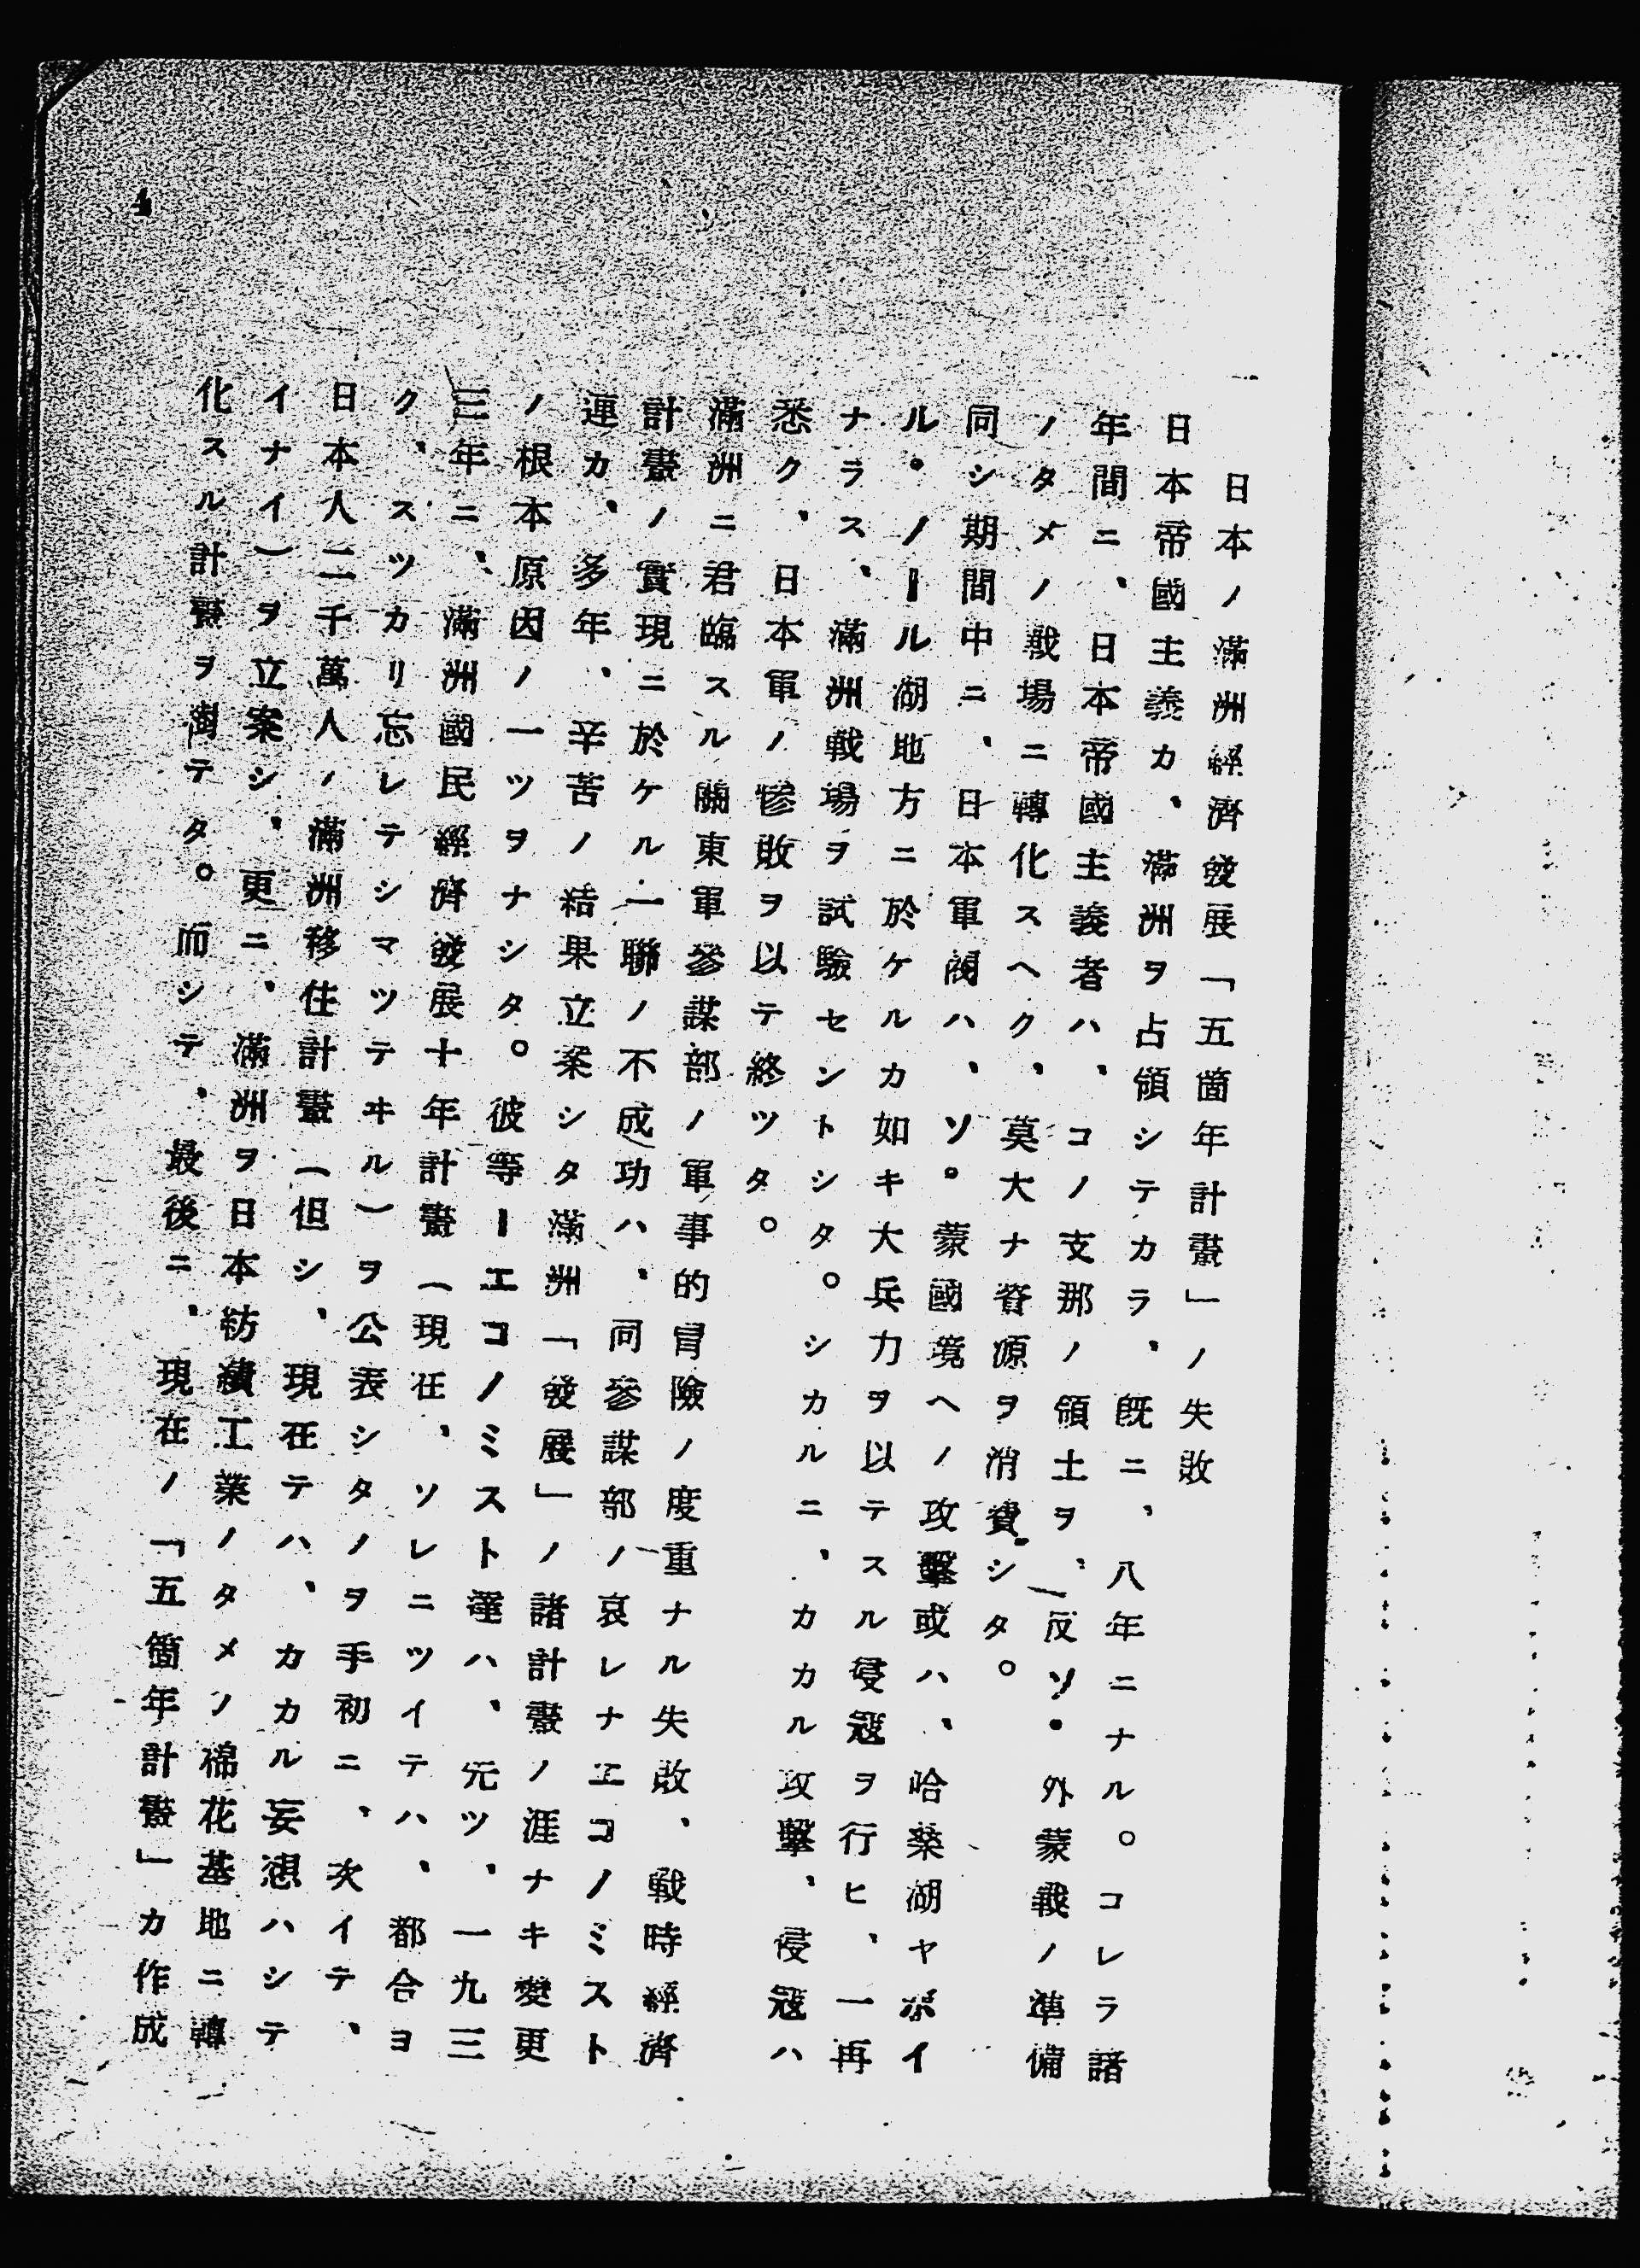 日本ノ滿洲經濟發展「五箇年計畫」ノ失敗
日本帝國主義カ、滿洲ヲ占領シテカラ、既ニ、八年ニナル。コレラ諸
年間ニ、日本帝國主義者ハ、コノ支那ノ領土ヲ、反ソ・外蒙戰ノ準備
ノタメノ戰場ニ轉化スヘク、莫大ナ資源ヲ消費シタ。
同シ期間中ニ、日本軍閥ハ、ソ。蒙國境ヘノ攻擊或ハ、哈藥湖ヤボイ
ル。ノール湖地方ニ於ケルカ如キ大兵力ヲ以テスル侵寇ヲ行ヒ、一再
ナラス、滿洲戰場ヲ試驗セントシタ。シカルニ、カカル攻擊、侵寇ハ
悉ク、日本軍ノ慘敗ヲ以テ終ツタ。
滿洲ニ君臨スル關東軍參謀部ノ軍事的冒險ノ度重ナル失敗、戰時經濟
計畫ノ實現ニ於ケル一聯ノ不成功ハ、同參謀部ノ哀レナエコノミスト
連カ、多年、辛苦ノ結果立案シタ滿洲「發展」ノ諸計畫ノ涯ナキ變更
ノ根本原因ノ一ツヲナシタ。彼等ーエコノミスト達ハ、元ツ、一九三
三年ニ、滿洲國民經濟發展十年計畫（現在、ソレニツイテハ、都合ヨ
ク、スツカリ忘レテシマツテヰル）ヲ公表シタノヲ手初ニ、次イテ、
日本人二千萬人ノ滿洲移住計畫（但シ、現在テハ、カカル妄想ハシテ
イナイ）ヲ立案シ、更ニ、滿洲ヲ日本紡績工業ノタメノ棉花基地ニ轉
化スル計畫ヲ樹テタ。而シテ、最後ニ、現在ノ「五箇年計畫」カ作成